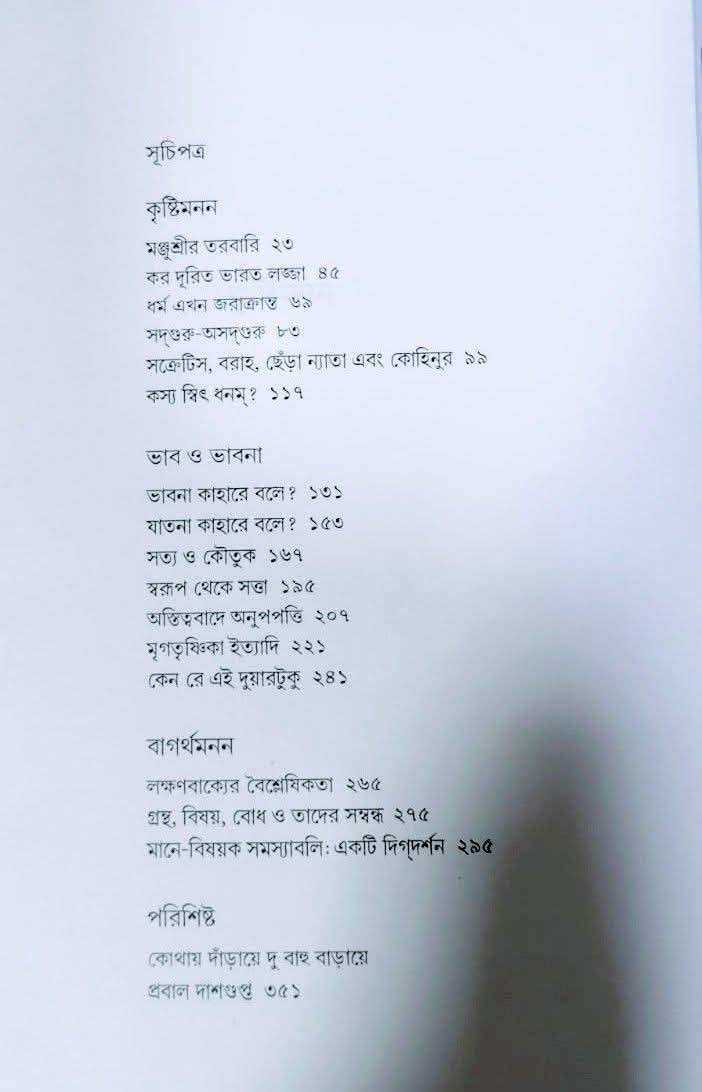 সূচিপত্র
কৃষ্টিমনন
মঞ্জুশ্রীর তরবারি ২৩
কর দূরিত ভারত লজ্জা ৪৫
ধর্ম এখন জরাক্রান্ত ৬৯
সদ্‌গুরু-অসদ্‌গুরু ৮৩
সক্রেটিস, বরাহ, ছেঁড়া ন্যাতা এবং কোহিনুর ৯৯
কস্য স্বিৎ ধনম্? ১১৭
ভাব ও ভাবনা
ভাবনা কাহারে বলে? ১৩১
যাতনা কাহারে বলে? ১৫৩
সত্য ও কৌতুক ১৬৭
স্বরূপ থেকে সত্তা ১৯৫
অস্তিত্ববাদে অনুপপত্তি ২০৭
মৃগতৃষ্ণিকা ইত্যাদি ২২১
কেন রে এই দুয়ারটুকু ২৪১
বাগর্থমনন
লক্ষণবাক্যের বৈশ্লেষিকতা ২৬৫
গ্রন্থ, বিষয়, বোধ ও তাদের সম্বন্ধ ২৭৫
মানে-বিষয়ক সমস্যাবলি: একটি দিগ্‌দর্শন ২৯৫
পরিশিষ্ট
কোথায় দাঁড়ায়ে দু বাহু বাড়ায়ে
প্রবাল দাশগুপ্ত ৩৫১